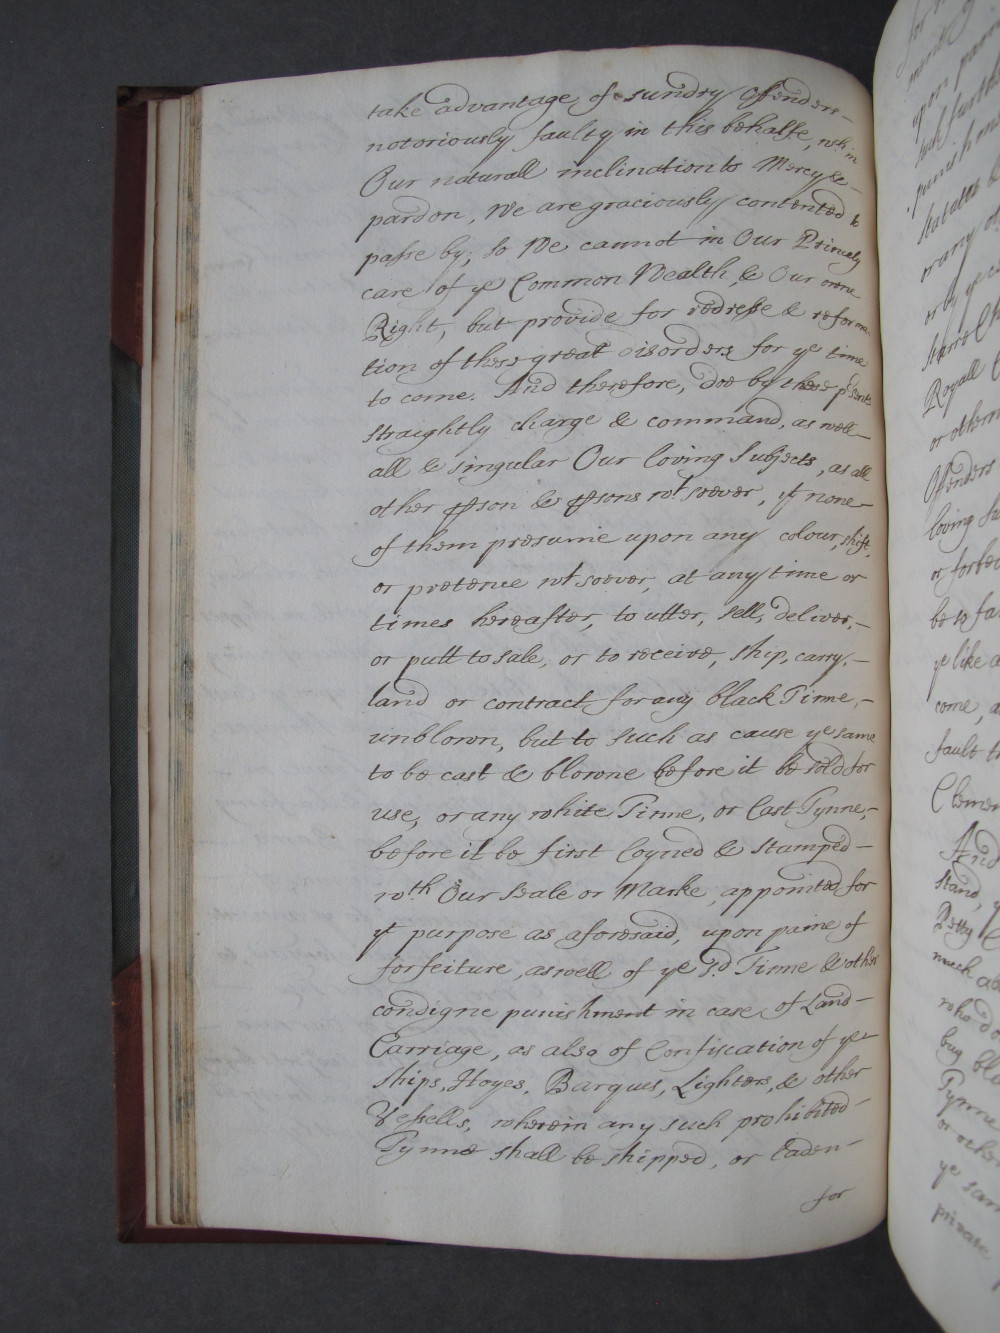 take advantage of sundry Offenders –
notoriously faulty in this behalfe, wch in
Our naturall inclination to Mercy &
pardon, We are graciously contented to
passe by; So We cannot in Our Princely
care of ye Common Wealth, & Our owne
Right, but provide for redresse & reforma-
tion of these great disorders for ye time
to come. And therefore, doe by these psents
straightly charge & command, as well –
all & singular Our loving Subjects, as all
other pson & psons wt soever, yt none –
of them presume upon any colour, shift,
or pretence wt soever, at any time or
times hereafter, to utter, sell, deliver, –
or putt to sale, or to receive, ship, carry, –
land or contract for any black Tinne, –
unblown, but to such as cause ye same
to be cast & blowne before it be sold for
use, or any white Tinne, or Cast Tynne, –
before it be first Coyned & Stamped –
wth Our Seale or Marke, appointed for
yt purpose as aforesaid, upon paine of
forfeiture, aswell of ye sd Tinne & other
consigne punishment in case of Land –
Carriage, as also of Confiscation of ye
Ships, Hoyes, Barques, Lighters, & other
Vessells, wherein any such prohibited –
Tynne shall be shipped, or Laden –
for
upon
such further
punishm
Statutes &
or by ye
Starre Ch
Royall
or other
Offenders
loving Su
or forbea
be so fa
ye like
come, a
fault
Clemen
And
stand,
Petty
much
who do
buy bla
Tynne
or other
ye sam
private